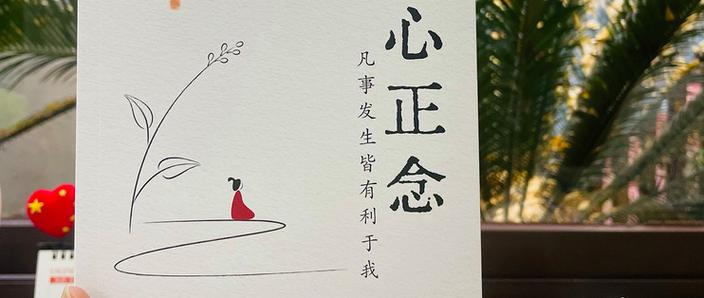 心正念
凡事发生皆有利于我